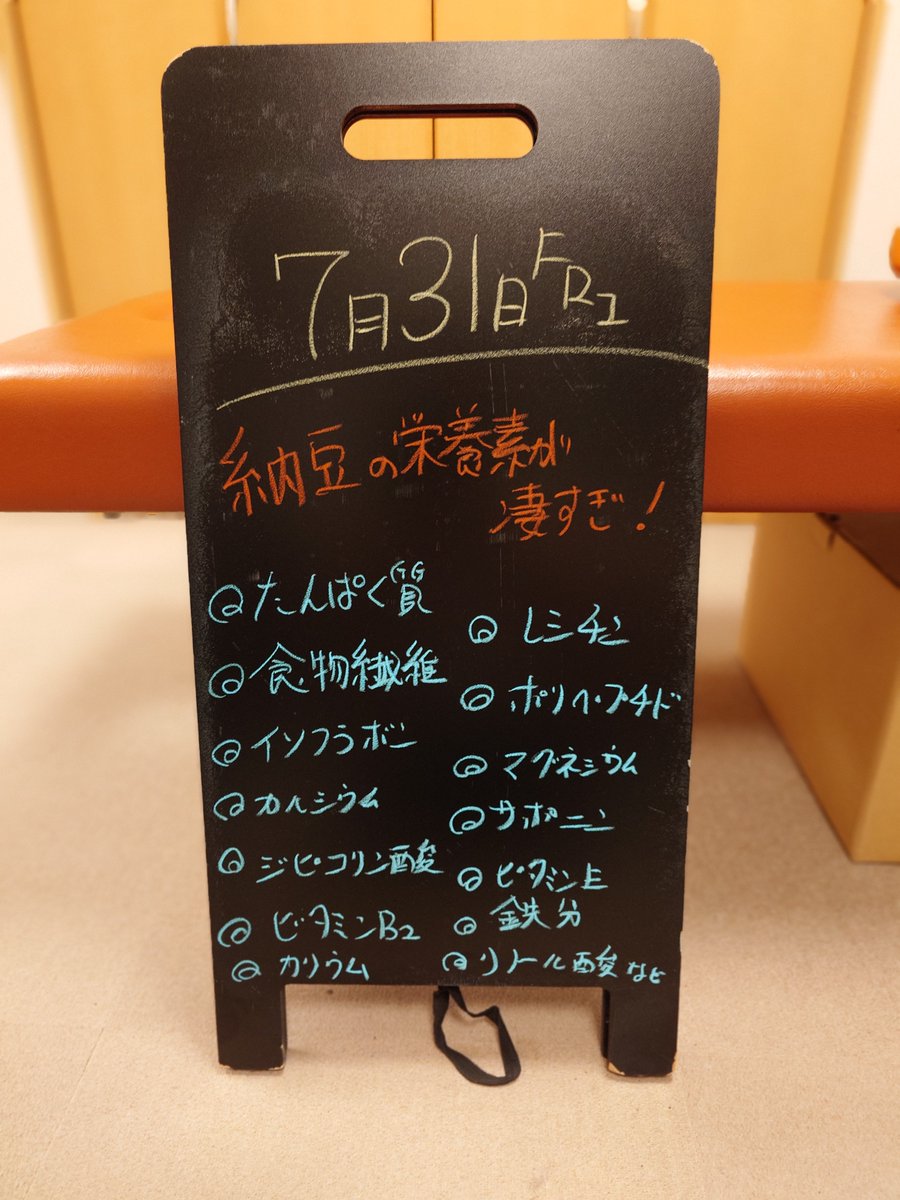 7月31日 FRI
納豆の栄養素が
凄すぎ！
たんぱく質
食物繊維
イソフラボン
カルシウム
ジピコリン酸
ビタミンB2
カリウム
レシチン
ポリペプチド
マグネシウム
サポニン
ビタミンE
鉄分
リノール酸など